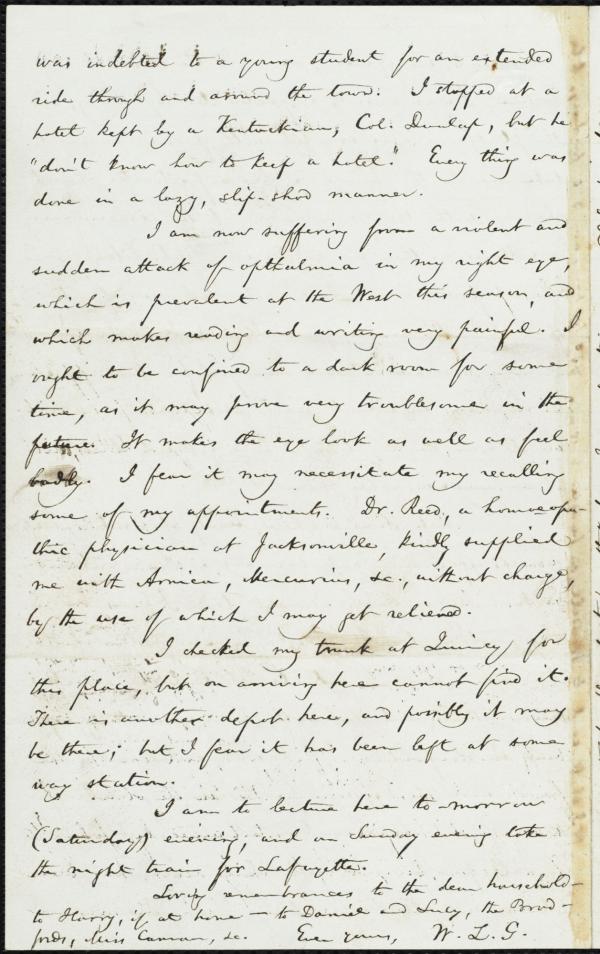 was indebted to a young student for an extended
ride through and around the town. I stopped at a
hotel kept by a Kentuckian, Col. Dunlap, but he
"don't know how to keep a hotel." Every thing was
done in a lazy, slip-shod manner.
I am now suffering from a violent and
sudden attack of opthalmia in my right eye,
which is prevalent at the West this season, and
which makes reading and writing very painful. I
ought to be confined to a dark room for some
time, as it may prove very troublesome in the
future. It makes the eye look as well as feel
badly. I fear it may necessitate my recalling
some of my appointments. Dr. Reed, a homœopa-
thic physician at Jacksonville, kindly supplied
me with Arnica, Mercurius, &c., without charge,
by the use of which I may get relieved.
I checked my trunk at Quincy for
this place, but on arriving here cannot find it.
There is another depot here, and possibly it may
be there; but I fear it has been left at some
way station.
I am to lecture here to-morrow
(Saturday) evening, and on Sunday evening take
the night train for Lafayette.
Loving remembrances to the dear household—
to Harry, if at home — to Daniel and Lucy, the Brad-
fords, Miss &c. Ever yours, W. L. G.